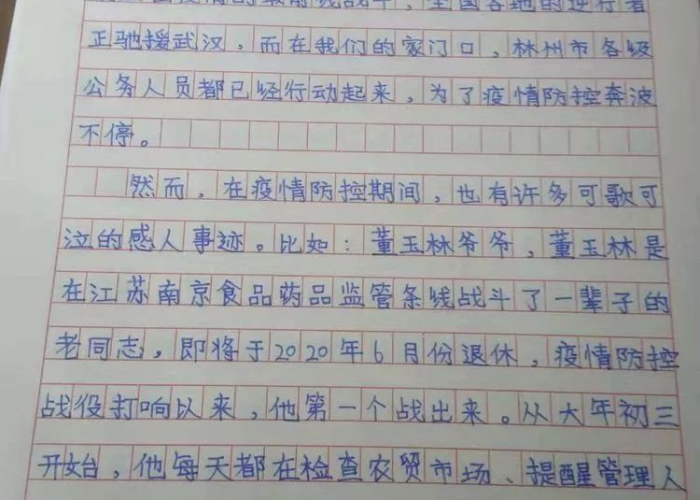 疫情的最前线战斗，全国各地的逆行者
正驰援武汉，而在我们的家门口，林州市各级
公务人员都已经行动起来，为了疫情防控奔波
不停。
然而，在疫情防控期间，也有许多可歌可
泣的感人事迹。比如：董玉林爷爷，董玉林是
在江苏南京食品药品监管条线战斗了一辈子的
老同志，即将于2020年6月份退休，疫情防控
战役打响以来，他第一个战出来。从大年初三
开始，他每天都在检查农贸市场、提醒管理人